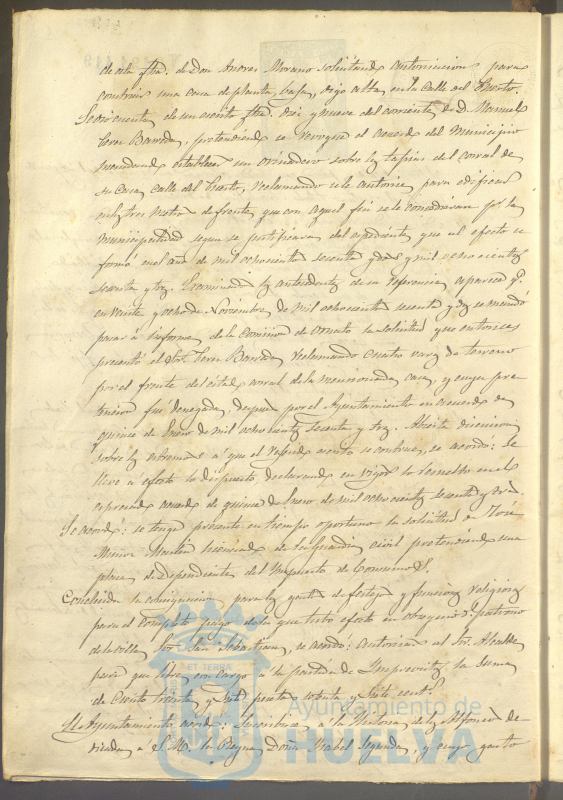 de esta fha. de Don Andres Morano solicitando autorizacion para
construir una casa de planta baja, digo alta, en la Calle del Puerto.
Se dió cuenta de un escrito fha. diez y nueve del corriente de D. Manuel
Perez Barreda, pretendiendo se revoque el acuerdo del Municipio
mandando establecer un orinadero sobre las tapias del corral de
su Casa, calle del Puerto, reclamando se le autorice para edificar
en los tres metros de frente, que con aquel fin se le concedieran por la
municipalidad segun se justificara del espediente que al efecto se
formó en el año de mil ochocientos sesenta y dos y mil ochocientos
sesenta y tres. Examinados los antecedentes de su referencia, aparece q.
en veinte y ocho de Noviembre de mil ochocientos sesenta y dos se mandó
pasar á informe de la Comision de Ornato la solicitud que entonces
presentó el dho. Perez Barreda reclamando cuatro varas de terreno
por el frente del citado corral de la mencionada casa, y cuya pre
tension fué denegada, despues por el Ayuntamiento en acuerdo de
quince de Enero de mil ochocientos sesenta y tres. Abierta discusion
sobre los estremos á que el referido escrito se contrae, se acordó: Se
lleve á efecto lo dispuesto declarando en vigor lo resuelto en el
espresado acuerdo de quince de Enero de mil ochocientos sesenta y tres.
Se acordó: se tenga presente en tiempo oportuno la solicitud de José
Muñoz Martin licenciado de la guardia civil pretendiendo una
plaza de Dependiente del Impuesto de Consumos.
Concluida la consignacion para los gastos de festejos y funciones religiosas
para el completo pago de la que tubo efecto en obsequio del patrono
de la villa, Sor. San Sebastian, se acordó: autorizar al Sr. Alcalde
para que libre con cargo á la partida de Imprevistos la suma
de Ciento treinta y siete pesetas ochenta y siete cents.
El Ayuntamiento acordó: Suscribirse á la Historia de los Alfonsos de
dicada a S. M. la Reyna Doña Isabel Segunda, y cuyo gasto
ET TERRA
Ayuntamiento de
HUELVA